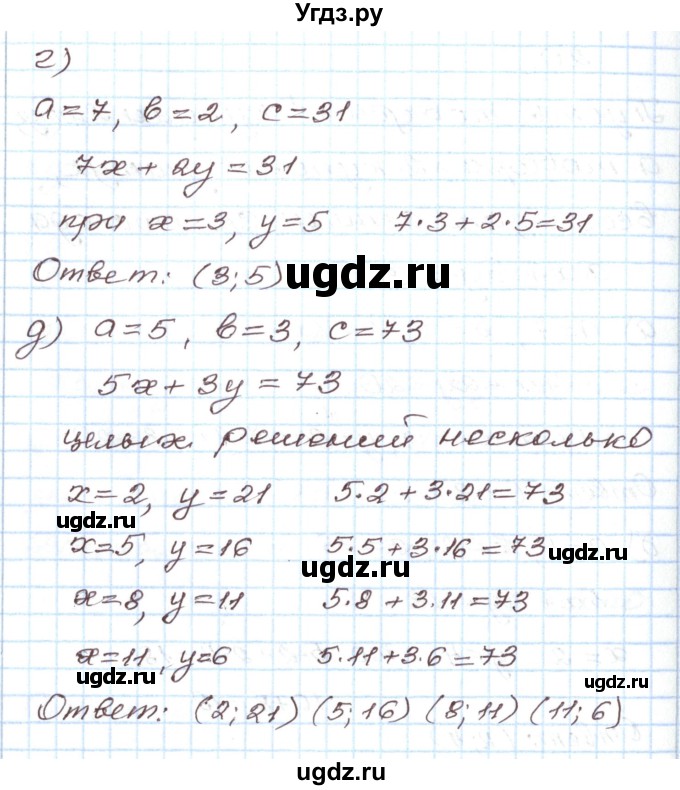 Угдз.ру
г)
a=7, b=2, c=31
7x+2y=31
при x=3, y=5 7·3+2·5=31
Ответ: (3;5)
ugdz.ru
д) a=5, b=3, c=73
5x+3y=73
целых решений несколько
x=2, y=21 5·2+3·21=73
ugdz.ru
x=5, y=16 5·5+3·16=73
ugdz.ru
ugdz.ru
x=8, y=11 5·8+3·11=73
x=11, y=6 5·11+3·6=73
ugdz.ru
ugdz.ru
Ответ: (2;21) (5;16) (8;11) (11;6)
ugdz.ru